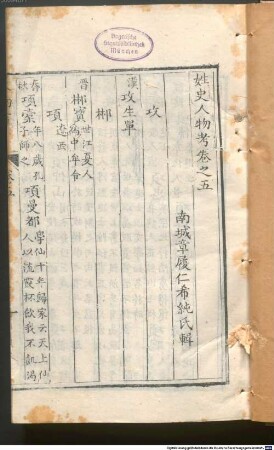 Bayerische
Staatsbibliothek
München
姓史人物考卷之五
南城章履仁希純氏輯
攻
漢攻生單
郴
晉郴寶
世江夏人
為中牟令
項
春秋項橐
年八歲孔
子師之
項曼都
學仙十年歸家云天上仙
人以流霞杯飲我不飢渴